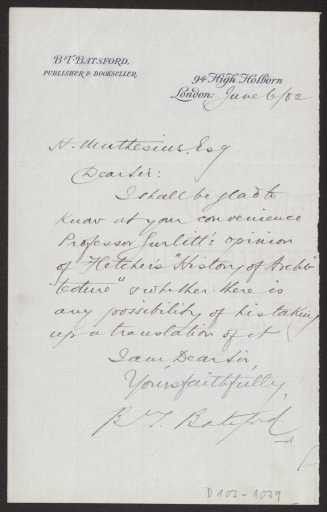 B. T. BATSFORD,
PUBLISHER & BOOKSELLER,
94 High Holborn
London: June 6/02
H. Muthesius Esq
Dear Sir:
I shall be glad to
know at your convenience
Professor Gurlitt's opinion
of Fletcher's "History of Archi-
tecture" & whether there is
any possibility of his taking
up a translation of it
I am Dear Sir,
Yours faithfully,
B. T. Batsford
D 102-1039